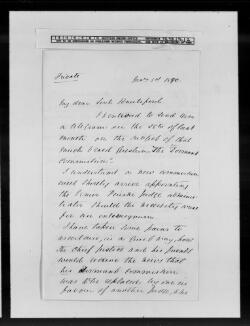 Private
Nov. 1st 1890.
My dear Lord Knutsford
I ventured to send you
a telegram on the 30th of last
month on the subject of that
much vexed question "The Dormant
Commission".
I understand a new commission
will shortly arrive appointing
the Senior Puisne Judge adminis-
trator should the necessity arise
for his entering upon
I have taken some pains to
ascertain, in a quiet way, how
the Chief Justice and his friends
would receive the news that
his dormant commission
was to be replaced by one in
favour of another Judge, who